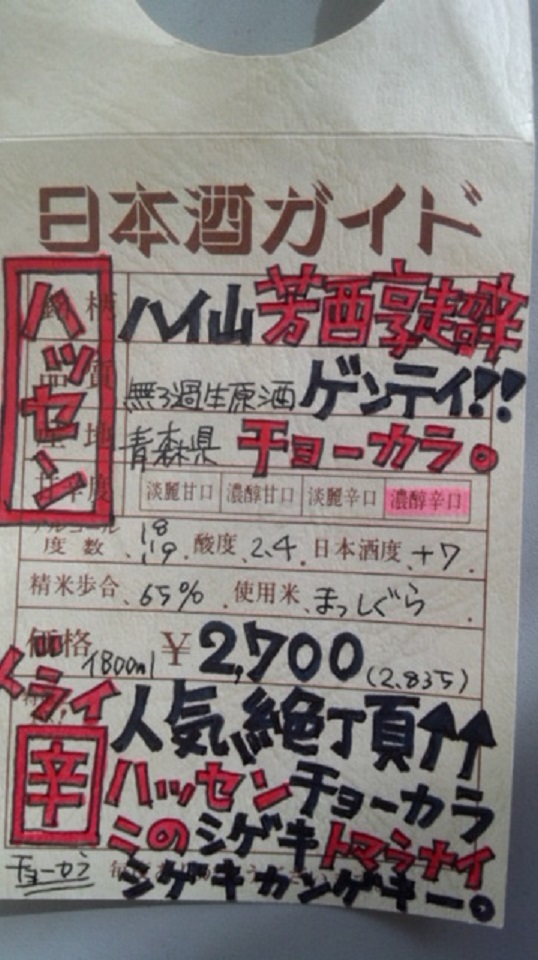 日本酒ガイド
ハッセン
ハイ山芳酉享超辛
無ろ過生原酒 ゲンテイ!!
産地 青森県 チョーカラ。
甘辛度 淡麗甘口 濃醇甘口 淡麗辛口 濃醇辛口
アルコール
度数 18 19 酸度 2.4 日本酒度 +7
精米歩合 65% 使用米 まっしぐら
価格 1800ml ¥2,700 (2.835)
ドライ
人気絶丁頁↑↑
辛
ハッセンチョーカラ
このシゲキトマラナイ
チョーカラ
シゲキカンゲキー。